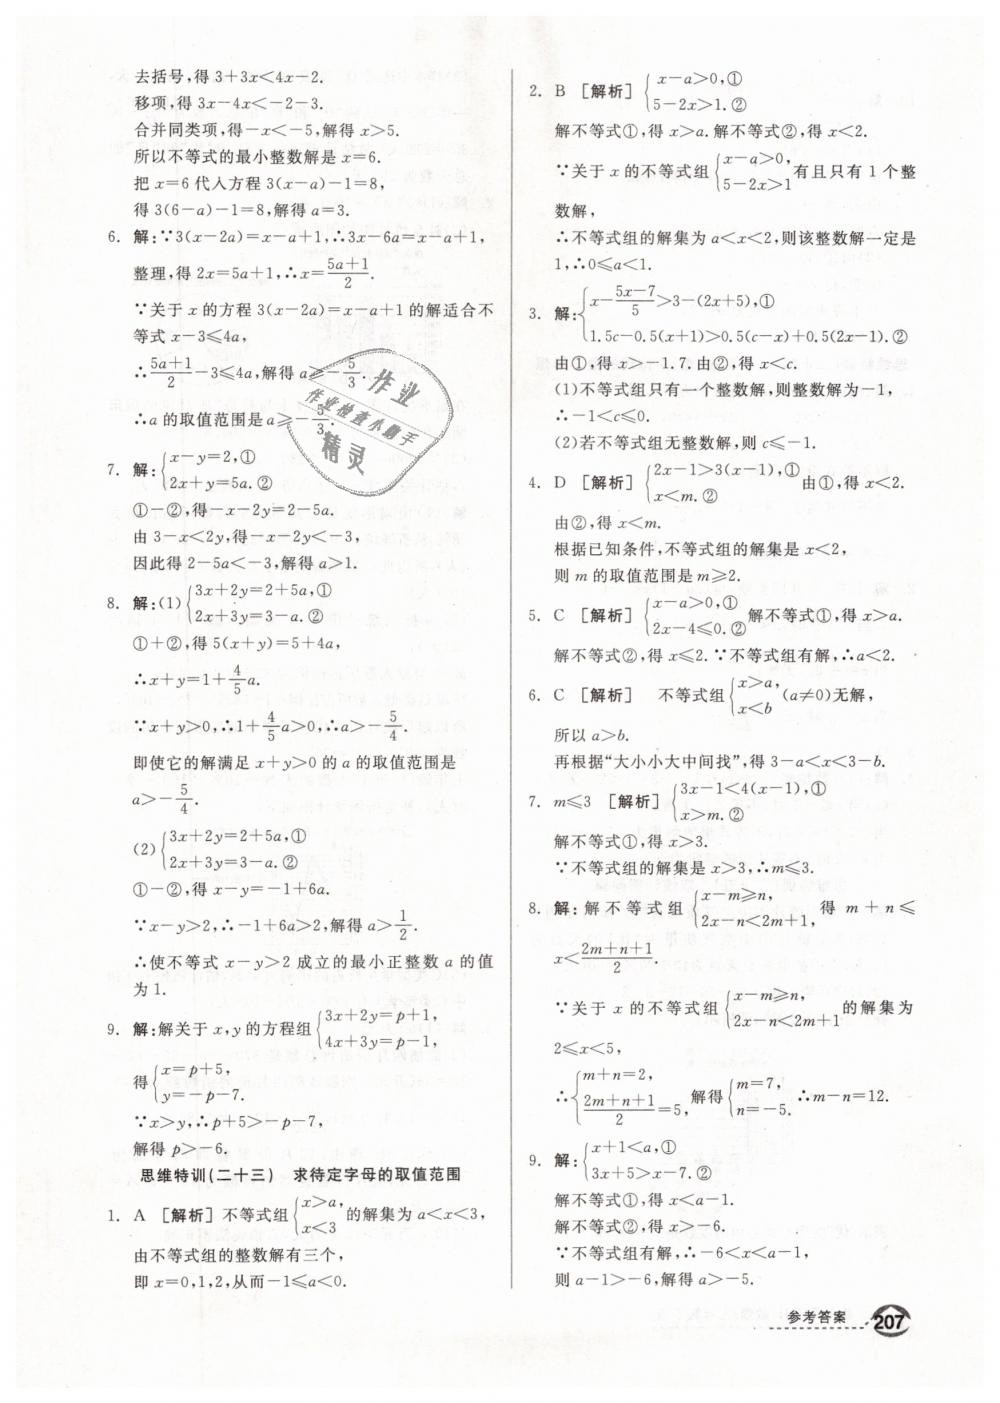 去括号,得3+3x<4x-2.
移项,得3x-4x<-2-3.
合并同类项,得-x<-5,解得x>5.
所以不等式的最小整数解是x=6.
把x=6代入方程3(x-a)-1=8,
得3(6-a)-1=8,解得a=3.
6. 解:∵3(x-2a)=x-a+1,∴3x-6a=x-a+1,
整理,得2x=5a+1,∴x=\frac{5a+1}{2}.
∵关于x的方程3(x-2a)=x-a+1的解适合不
等式x-3≤4a,
∴\frac{5a+1}{2}-3≤4a,解得a≥-\frac{5}{3}.
∴a的取值范围是a≥-\frac{5}{3}.
7. 解:{x-y=2,①
2x+y=5a.②
①-②,得-x-2y=2-5a.
由3-x<2y,得-x-2y<-3,
因此得2-5a<-3,解得a>1.
8. 解:(1){3x+2y=2+5a,①
2x+3y=3-a.②
①+②,得5(x+y)=5+4a,
∴x+y=1+\frac{4}{5}a.
∵x+y>0,∴1+\frac{4}{5}a>0,∴a>-\frac{5}{4}.
即使它的解满足x+y>0的a的取值范围是
a>-\frac{5}{4}.
(2){3x+2y=2+5a,①
2x+3y=3-a.②
①-②,得x-y=-1+6a.
∵x-y>2,∴-1+6a>2,解得a>\frac{1}{2}.
∴使不等式x-y>2成立的最小正整数a的值
为1.
9. 解:解关于x,y的方程组{3x+2y=p+1,
4x+3y=p-1,
得{x=p+5,
y=-p-7.
∵x>y,∴p+5>-p-7,
解得p>-6,
思维特训(二十三) 求待定字母的取值范围
1. A [解析]不等式组{x>a,
x<3的解集为a<x<3,
由不等式组的整数解有三个,
即x=0,1,2,从而-1≤a<0.
2. B [解析]{x-a>0,①
5-2x>1.②
解不等式①,得x>a.解不等式②,得x<2.
∵关于x的不等式组{x-a>0,
5-2x>1有且只有1个整
数解,
∴不等式组的解集为a<x<2,则该整数解一定是
1,∴0≤a<1.
3. 解:{x-\frac{5x-7}{5}>3-(2x+5),①
1.5c-0.5(x+1)>0.5(c-x)+0.5(2x-1).②
由①,得x>-1.7.由②,得x<c.
(1)不等式组只有一个整数解,则整数解为-1,
∴-1<c≤0.
(2)若不等式组无整数解,则c≤-1.
4. D [解析]{2x-1>3(x-1),①
x<m.②由①,得x<2.
由②,得x<m.
根据已知条件,不等式组的解集是x<2,
则m的取值范围是m≥2.
5. C [解析]{x-a>0,①
2x-4≤0.②解不等式①,得x>a.
解不等式②,得x≤2.∵不等式组有解,∴a<2.
6. C [解析] 不等式组{x>a,
x<b(a≠0)无解,
所以a>b.
再根据“大小小大中间找”,得3-a<x<3-b.
7. m≤3 [解析]{3x-1<4(x-1),①
x>m.②
解不等式①,得x>3.
∵不等式组的解集是x>3,∴m≤3.
8. 解:解不等式组{x-m≥n,
2x-n<2m+1,得m+n≤
x<\frac{2m+n+1}{2}.
∵关于x的不等式组{x-m≥n,
2x-n<2m+1的解集为
2≤x<5,
∴{m+n=2,
\frac{2m+n+1}{2}=5,解得{m=7,
n=-5.∴m-n=12.
9. 解:{x+1<a,①
3x+5>x-7.②
解不等式①,得x<a-1.
解不等式②,得x>-6.
∵不等式组有解,∴-6<x<a-1,
则a-1>-6,解得a>-5.
作业
作业检查小助手
精灵
参考答案 207